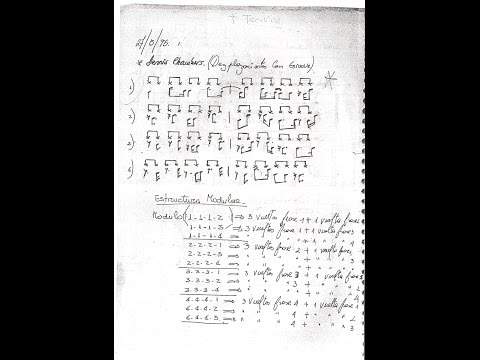 + Tecnica
27/8/96.
* Dennis Chambers. (Desplazamientos Con Groove).
1)
2)
3)
4)
Estructura Modular
Modulo (1-1-1-2) ⇒ 3 vueltas frase 1 + 1 vuelta frase 2
1-1-1-3 ⇒ 3 vueltas frase 1 + 1 vuelta frase 3
1-1-1-4 ⇒ " " " " + " " 4
2-2-2-1 ⇒ 3 vueltas frase 2 + 1 vuelta frase 1
2-2-2-3 ⇒ " " " " + " " 3
2-2-2-4 ⇒ " " " " + " " 4
3-3-3-1 ⇒ 3 vueltas frase 3 + 1 vuelta frase 1
3-3-3-2 ⇒ " " " 3 + " " 2
3-3-3-4 ⇒ " " " 3 + " " 4
4-4-4-1 ⇒ 3 vueltas frase 4 + 1 vuelta frase 1
4-4-4-2 ⇒ " " " 4 + " " 2
4-4-4-3 ⇒ " " " 4 + " " 3